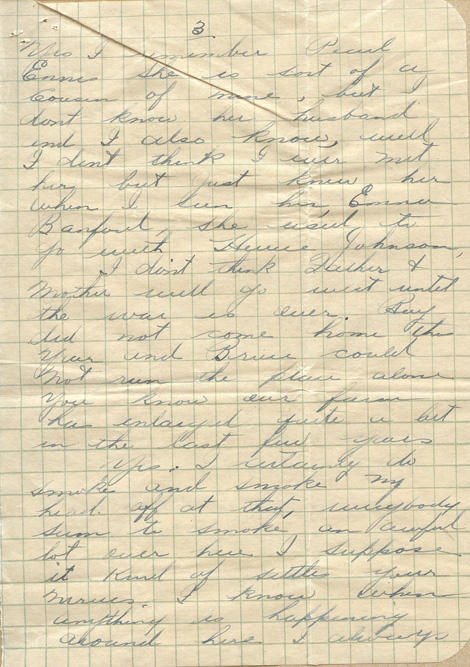 3
Yes I remember Pearl
Ennis she is sort of a
cousin of mine, but I
dont know her husband
and I also know, well
I dont think I ever met
her, but just knew her
when I seen her, Emma
Banford, she used to
go with Johnson,
I don't think Father &
Mother will go west until
the war is over. Ray
did not come home this
Year and Bruce could
not run the place alone
You know our farm
has enlarged quite a bit
in the last few years
Yes. I certainly do
smoke and smoke my
head off at that, everybody
seem to smoke an awful
lot over here I suppose
it kind of settles your
nerves I know when
anything is happening
around here I always